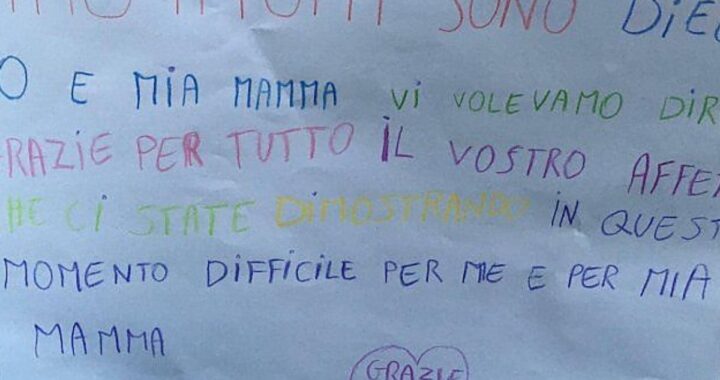 TUTTI SONO DIE
O E MIA MAMMA VI VOLEVAMO DIR
RAZIE PER TUTTO IL VOSTRO AFFE
HE CI STATE DIMOSTRANDO IN QUEST
MOMENTO DIFFICILE PER ME E PER MIA
MAMMA
GRAZIE